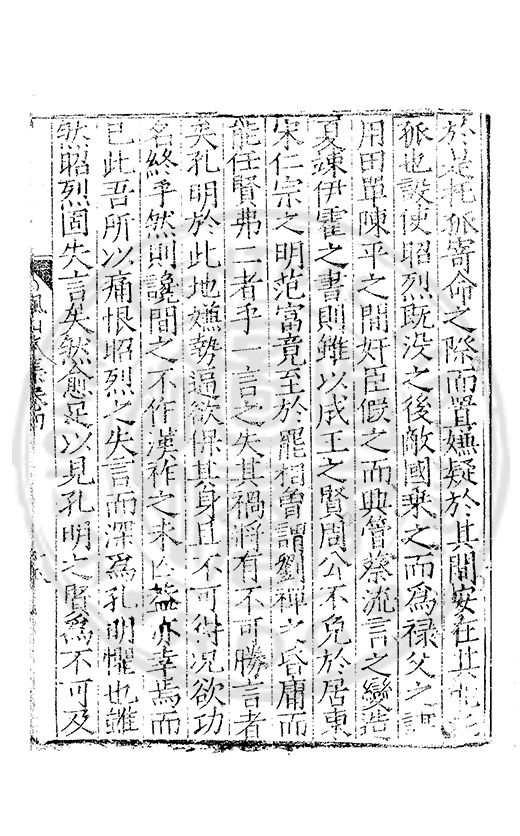 於是托孤寄命之際而置嫌疑於其間安在其
孤也設使昭烈既没之後敵國乘之而為禄父之
用田單陳平之間奸臣假之而興管蔡流言之變造
夏竦伊霍之書則雖以成王之賢周公不免於居東
宋仁宗之明范富竟至於罷相魯謂劉禪之昏庸而
能任賢弗二者乎一言之失其禍將有不可勝言者
矣孔明於此地嫌勢逼欲保其身且不可得况欲功
名終乎然則讒間之不作漢祚之未亡葢亦幸焉而
已此吾所以痛恨昭烈之失言而深為孔明懼也雖
然昭烈固失言矣然愈足以見孔明之賢為不可及